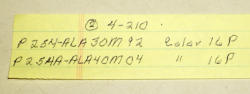 ② 4-210.
P254-ALA30M92 Color 16P
P254A-ALA40M04 " 16P